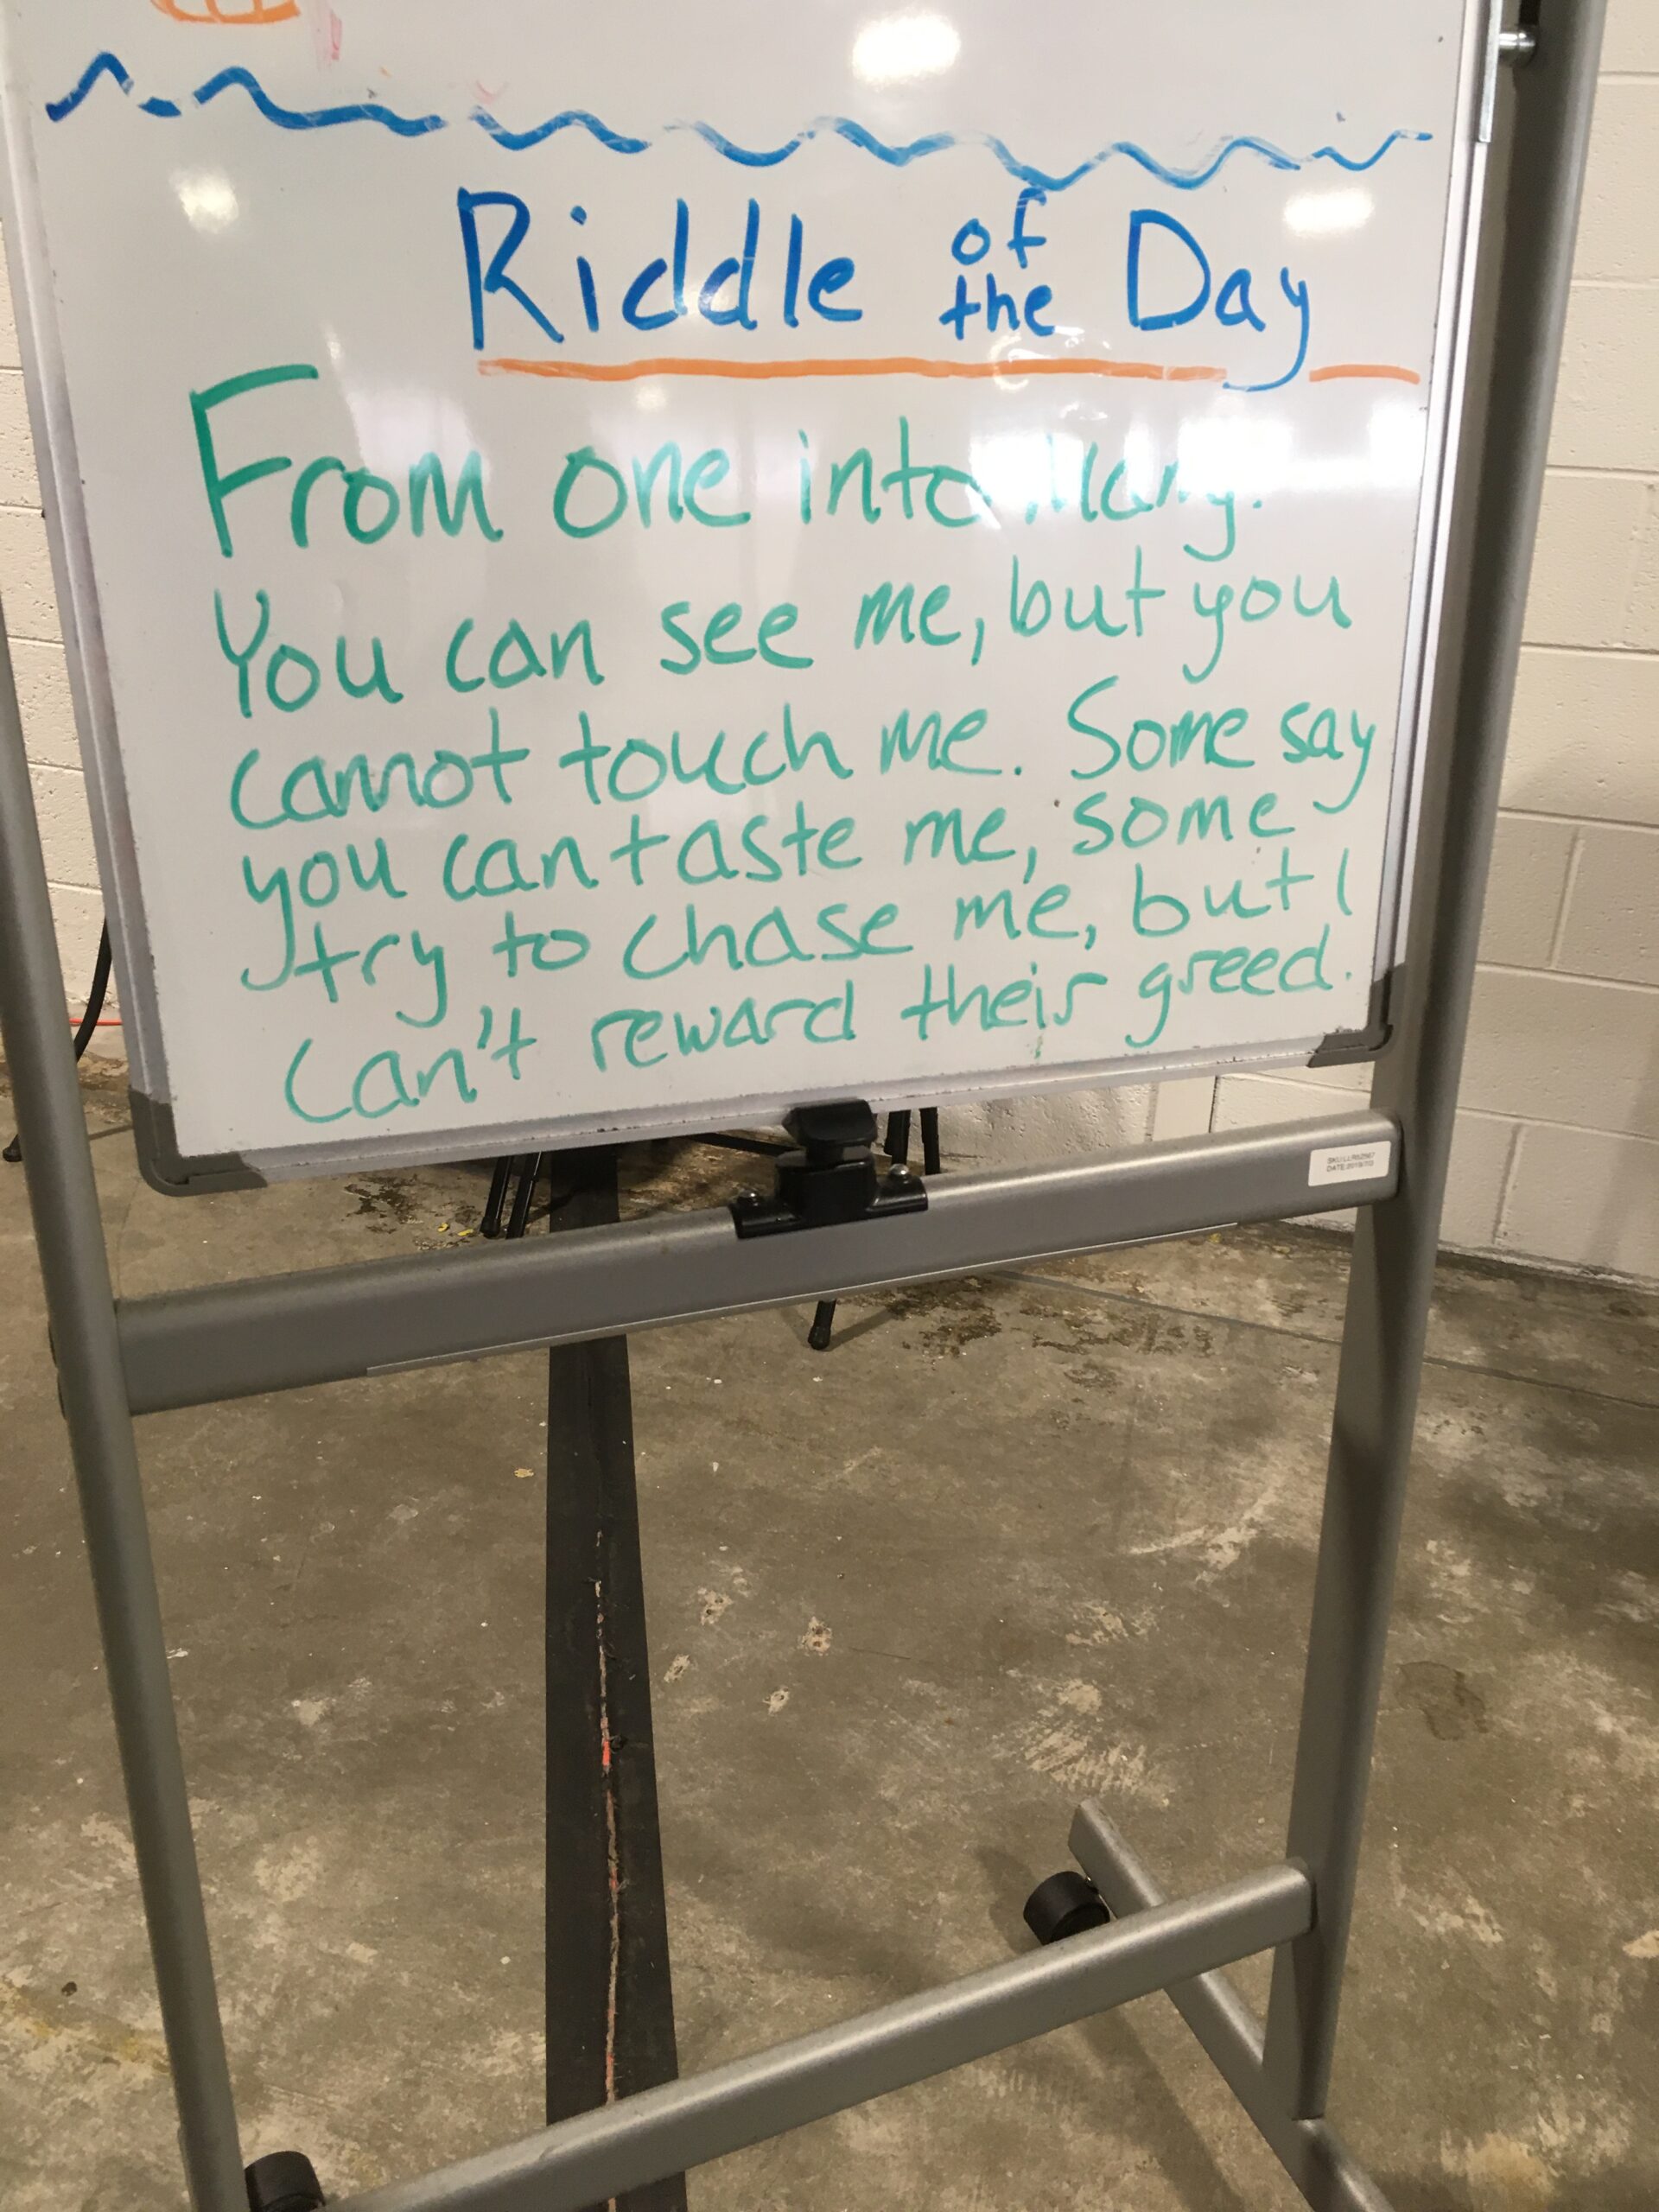 Riddle of the Day
From one into Many.
You can see me, but you
cannot touch me. Some say
you can taste me, some
try to chase me, but I
can't reward their greed.